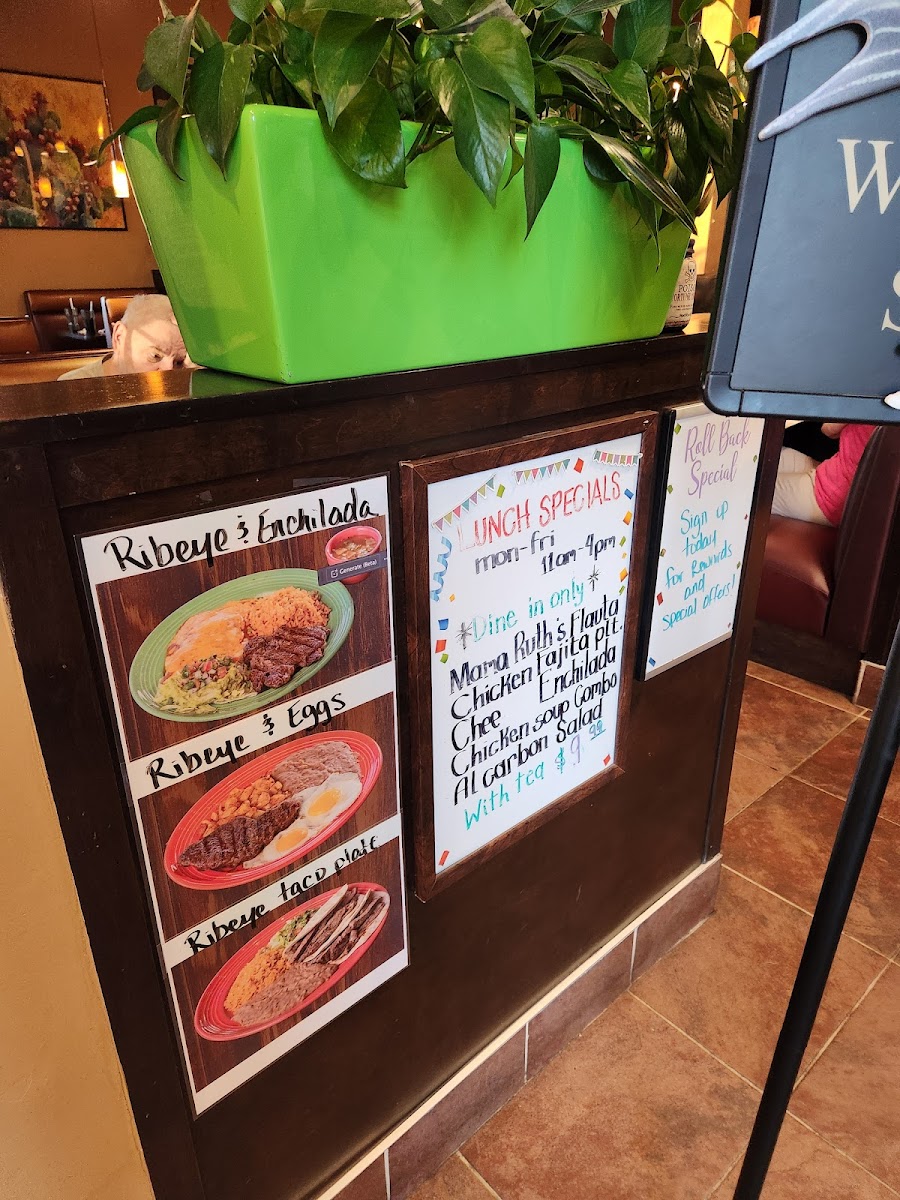 Ribeye & Enchilada
Generate (Beta)
Ribeye & Eggs
Ribeye taco plate
LUNCH SPECIALS
mon-fri
11am-4pm
*Dine in only*
Mama Ruth's Flauta
Chicken Fajita plt.
Chee Enchilada
Chicken soup Combo
Al carbon Salad
With tea $9.99
Roll Back
Special
Sign up
today
for Rewards
and
special offers!
W
S